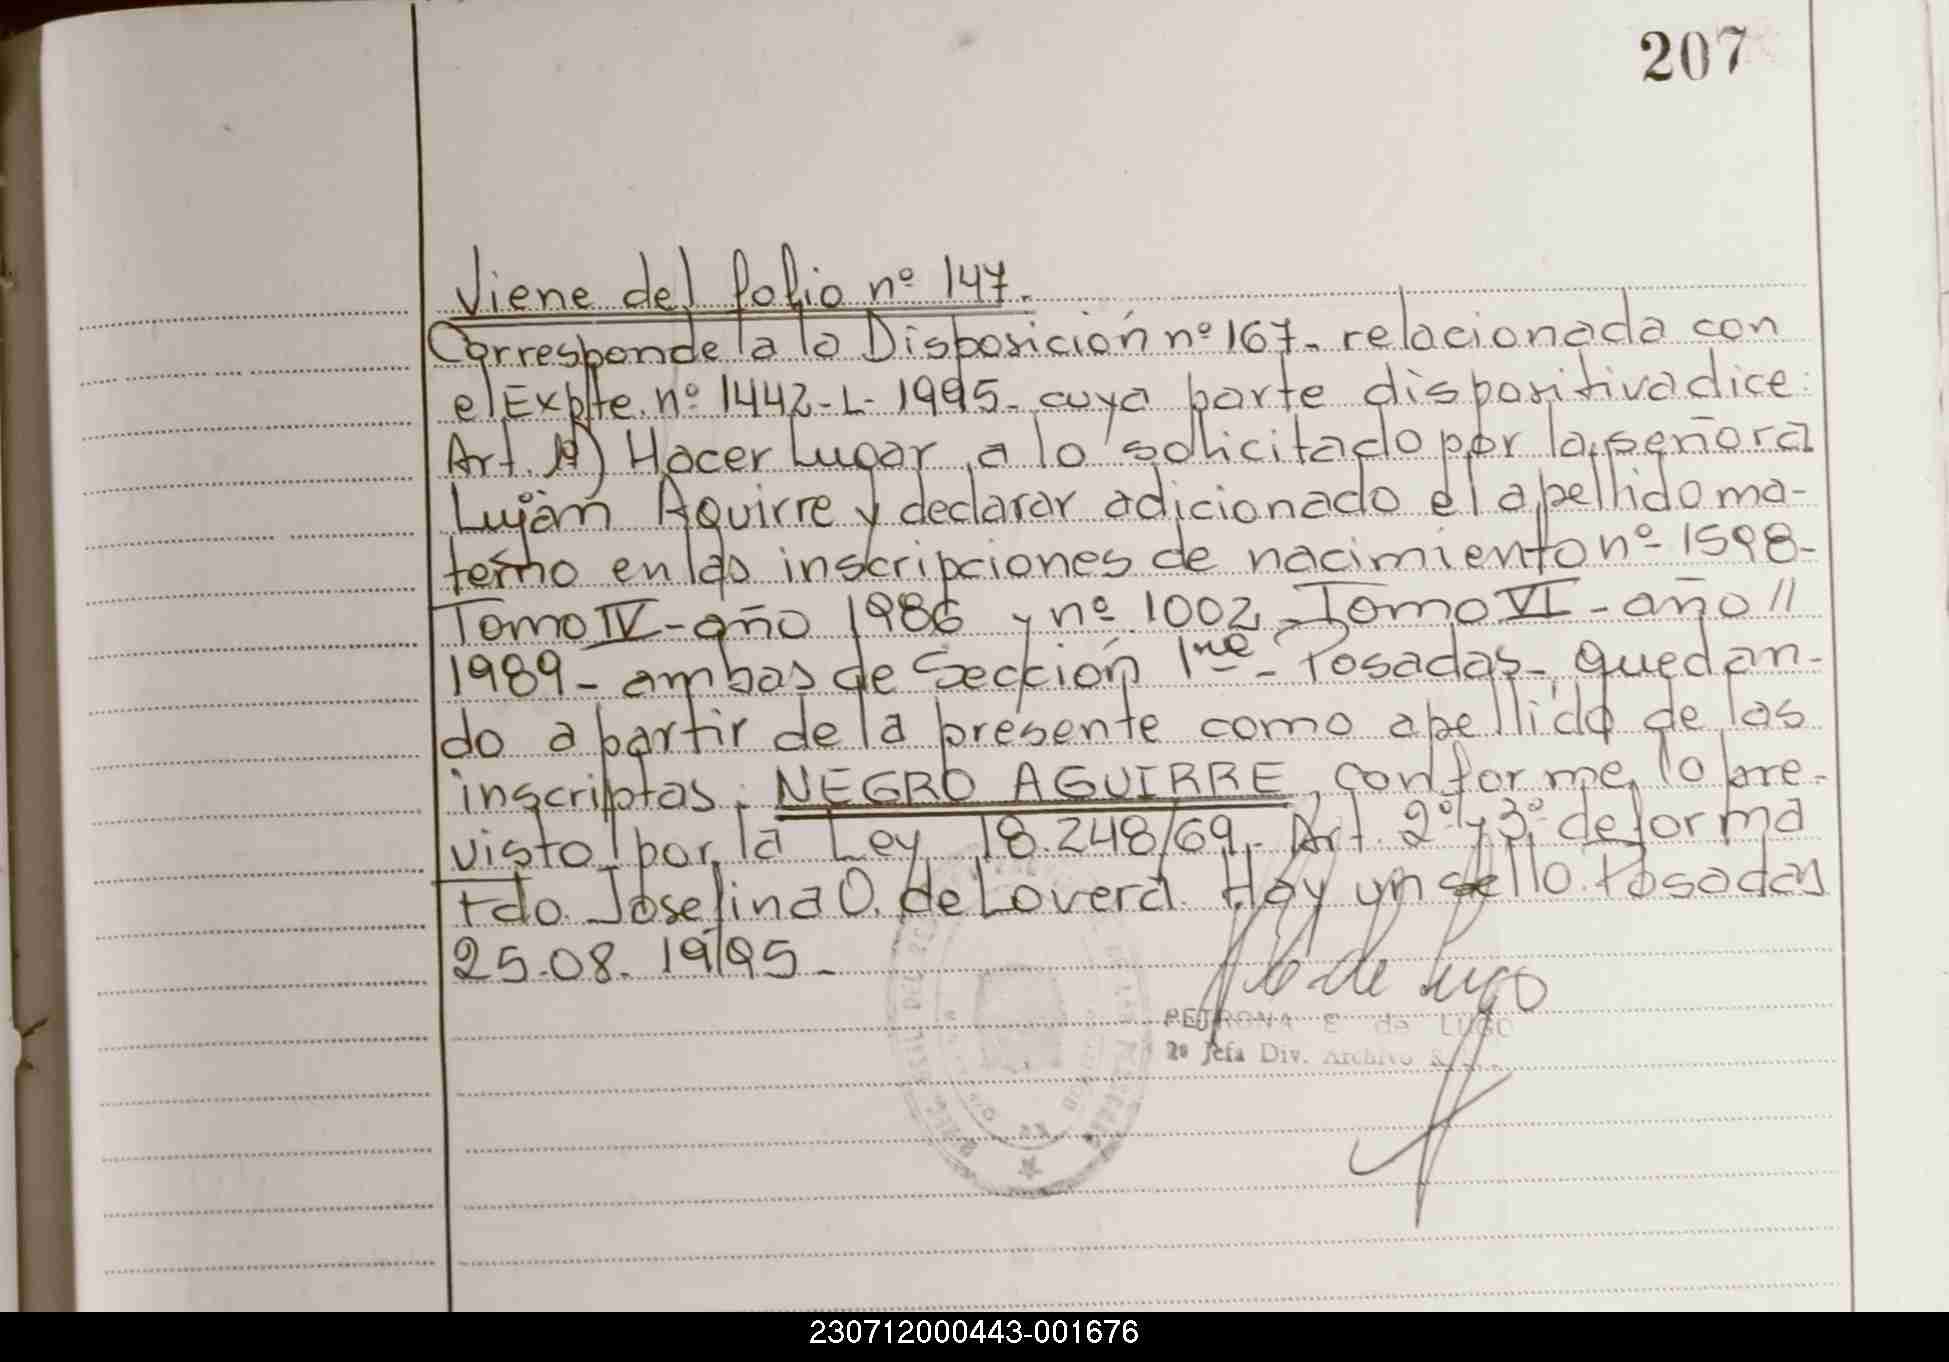 207
Viene del folio nº 147.
Corresponde a la Disposición nº 167. relacionada con
el Expte. nº 1442-L-1995- cuya parte dispositiva dice:
Art. 1º) Hacer Lugar a lo solicitado por la señora
Luján Aguirre y declarar adicionado el apellido ma-
terno en las inscripciones de nacimiento nº 1598-
Tomo IV - año 1986 y nº 1002 - Tomo VI - año //
1989 - ambas de Sección 1ra - Posadas - quedan-
do a partir de la presente como apellido de las
inscriptas. NEGRO AGUIRRE, conforme lo pre-
visto por la Ley 18.248/69 - Art. 2º y 3º de forma
Fdo. Josefina O. de Lovera. Hay un sello. Posadas
25.08.1995 -
de Lugo
PETRONA E de LUGO
2º Jefa Div. Archivo
230712000443-001676